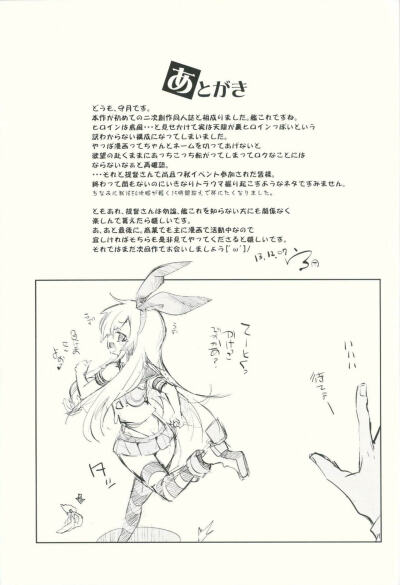 あとがき
どうも、守月です。
本作が初めての二次創作同人誌と相成りました。艦これですね。
ヒロインは島風・・・と見せかけて実は天龍が裏ヒロインっぽいという
訳わからない構成になってしまいました。
やっぱ漫画ってちゃんとネームを切ってあげないと
欲望の赴くままにあっちこっち転がってしまってロクなことには
ならないなぁと再確認。
それと、提督さんで尚且つ秋イベント参加された皆様。
終わって間もないのにいきなりトラウマ掘り起こすようなネタですみません。
ともあれ、提督さんは勿論、艦これを知らない方にも関係なく
楽しんで貰えたら嬉しいです。
あ、あと最後に。商業でも主に漫画で活動中なので
宜しければそちらも是非見てやってくださると嬉しいです。
それではまた次回作でお会いしましょう['ω']ノ
13.12.07
てーとく
かけっこ
いいい
待てー
タッ